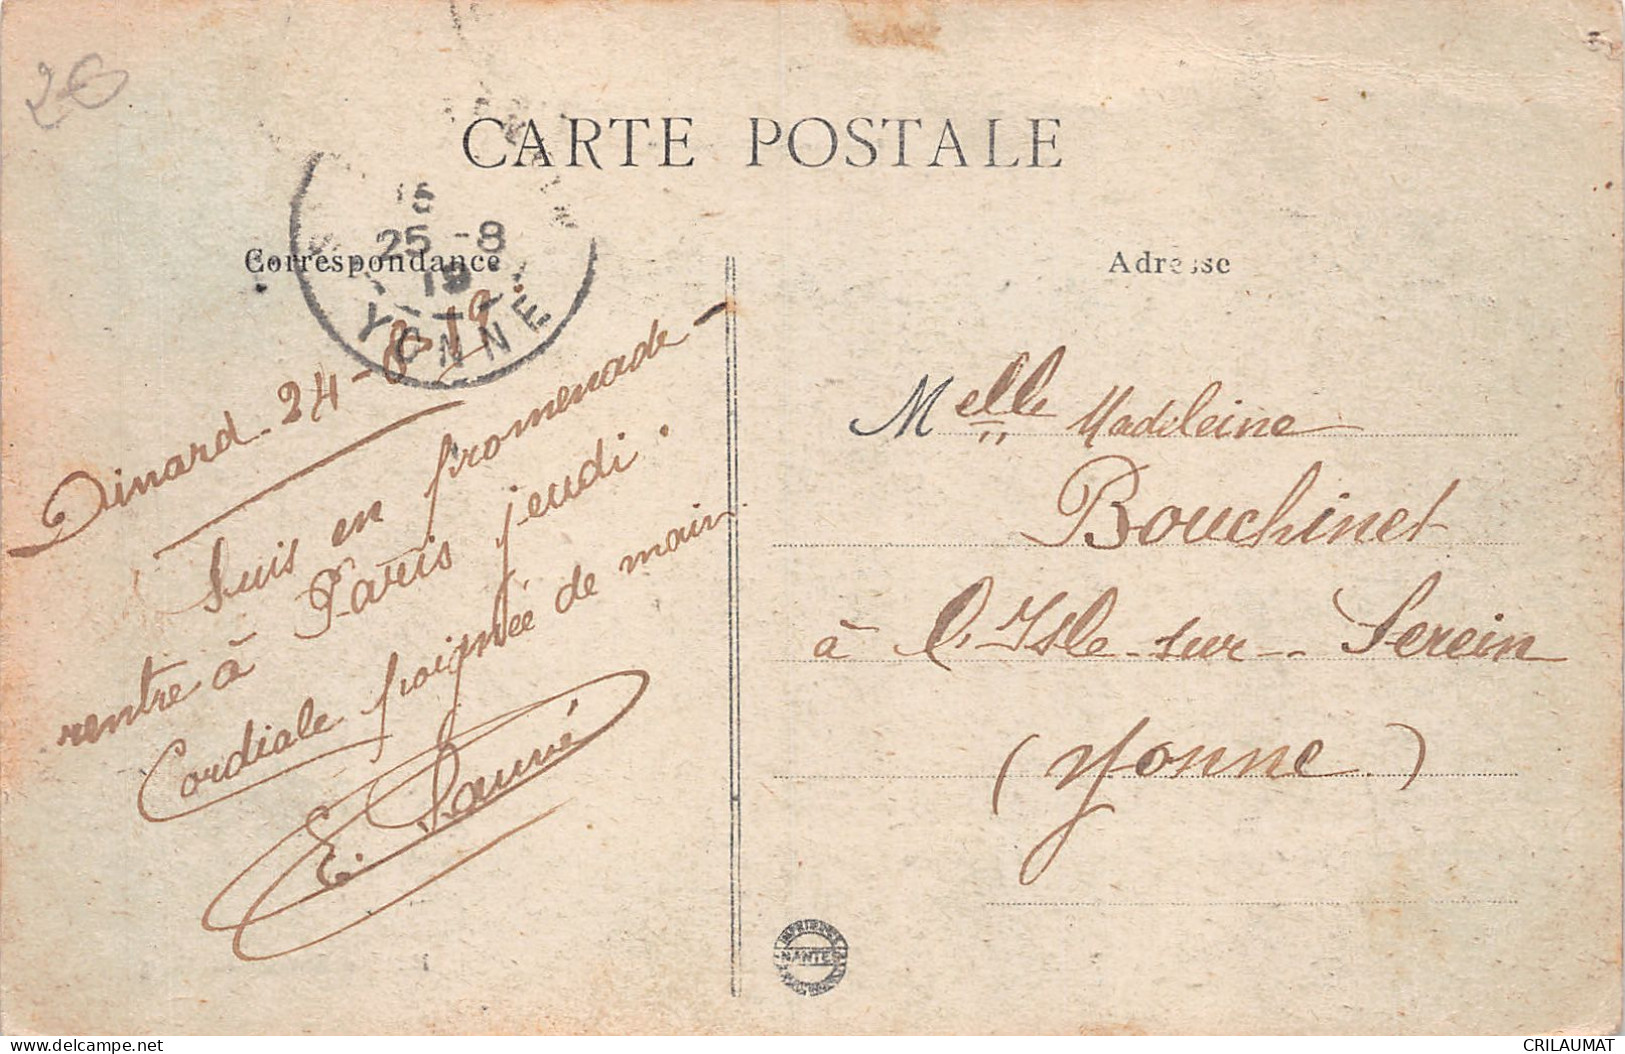 2€
CARTE POSTALE
25-8
19
YONNE
Correspondance
Adresse
Dinard - 24-8-19.
Suis en promenade -
rentre à Paris jeudi.
Cordiale poignée de main
Melle Madeleine
Bouchinet
à l'Isle-sur-Serein
(Yonne)
NANTES
CRILAUMAT